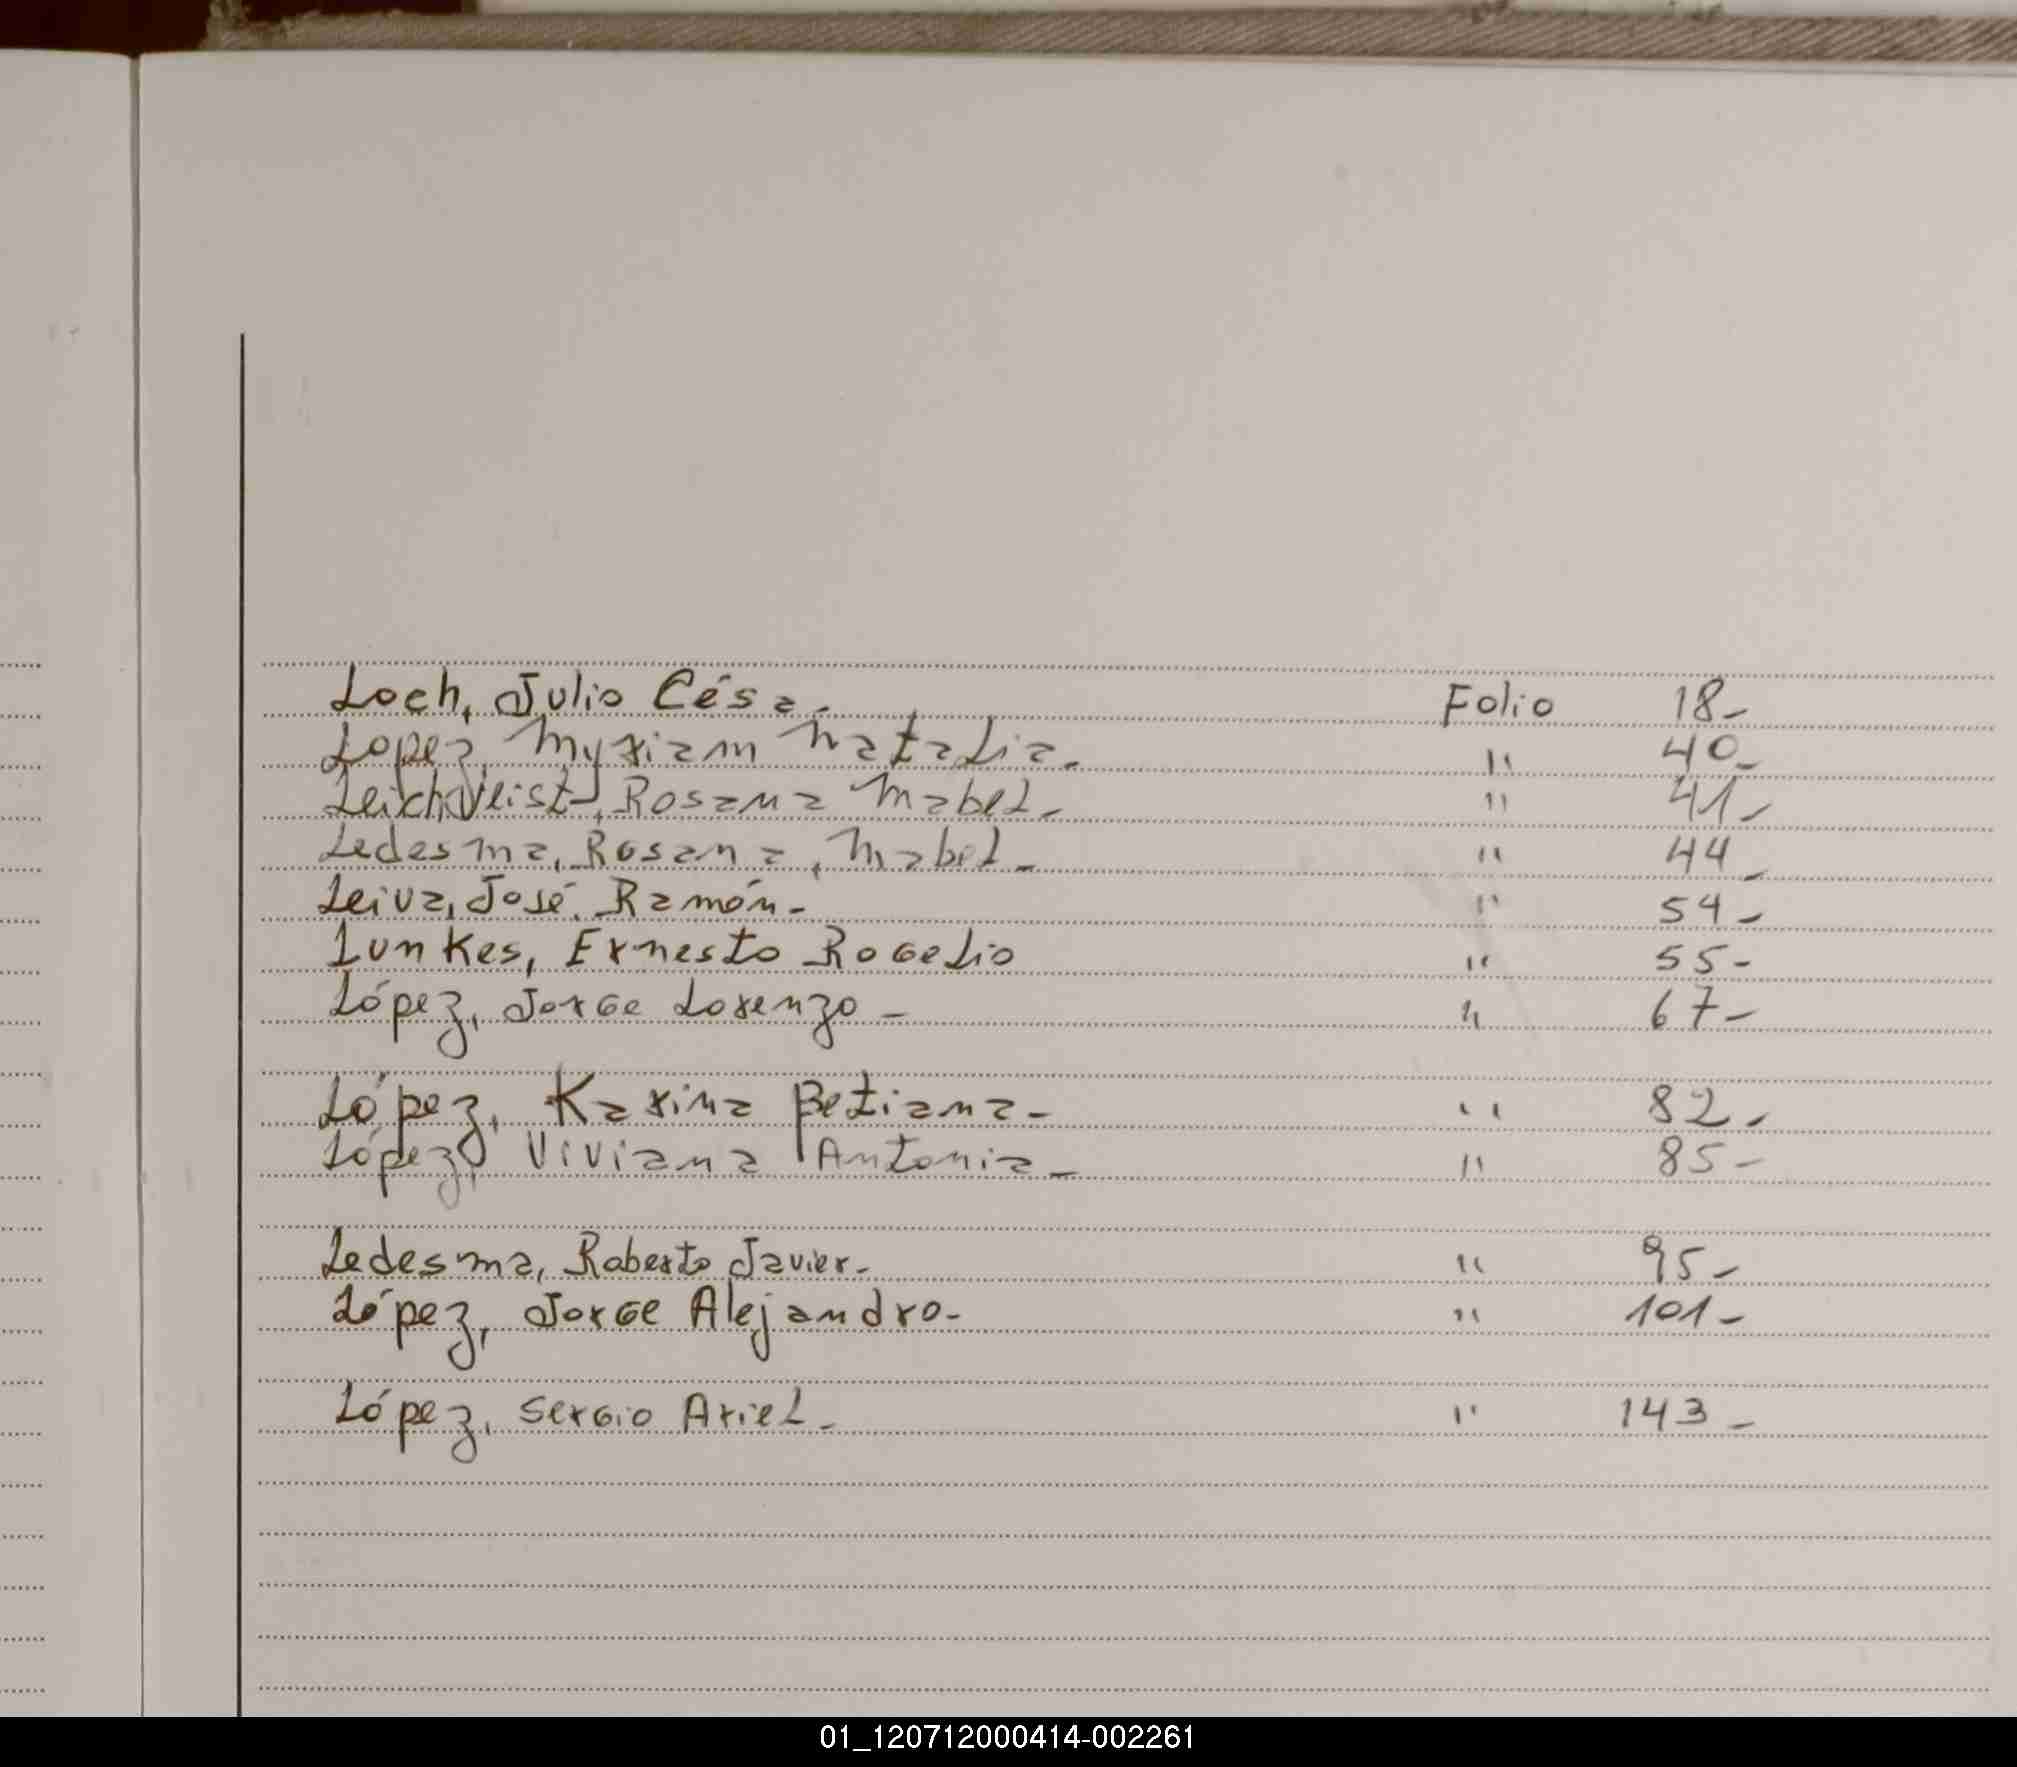 Loch, Julio Césa.- Folio 18-
Lopez, Myriam Natalia. " 40-
Leichtveist, Rosana Mabel.- " 41-
Ledesma, Rosana, Mabel.- " 44-
Leiva, José Ramón.- " 54-
Lunkes, Ernesto Rogelio " 55-
López, Jorge Lorenzo- " 67-
López, Karina Betiana- " 82-
López, Viviana Antonia- " 85-
Ledesma, Roberto Javier.- " 95-
López, Jorge Alejandro- " 101-
López, Sergio Ariel.- " 143-
01_120712000414-002261